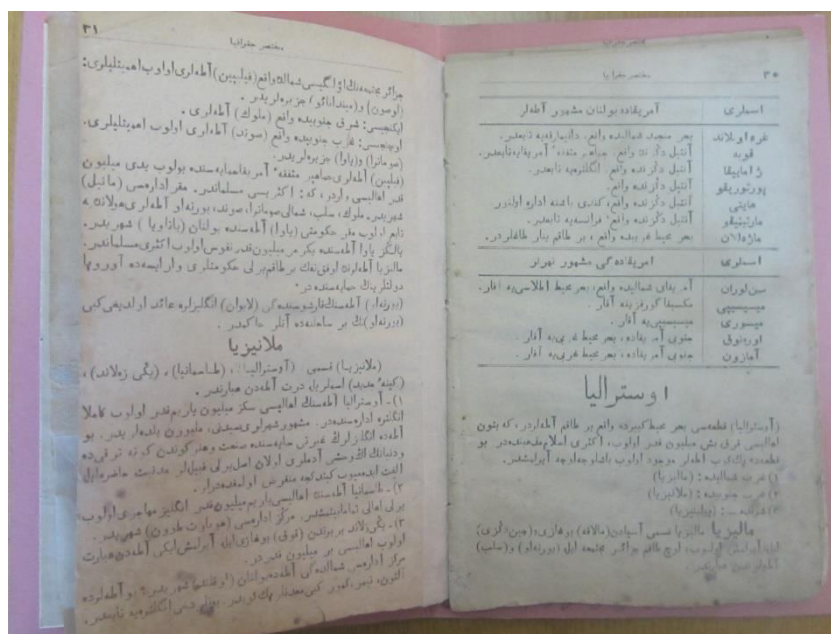 ٣٠
مختصر جغرافيا
اسملری آمريقاده بولنان مشهور آطه‌لر
غره اونلاند بحر منجمد شماليده واقع، دانيمارقه‌يه تابعدر.
قوبه آنتيل دكزنده واقع، جماهير متفقهٔ آمريقايه تابعدر.
ژامايقا آنتيل دكزنده واقع، انگلتره‌يه تابعدر.
پورتوريقو آنتيل دكزنده واقع.
هايتی آنتيل دكزنده واقع، كندی باشنه اداره اولنور.
مارتينيقو آنتيل دكزنده واقع، فرانسه‌يه تابعدر.
ماژه‌لان بحر محيط غربيده واقع، بر طاقم ينار طاغلردر.
اسملری آمريقاده‌كی مشهور نهرلر
سن لوران آمريقای شماليده واقع، بحر محيط اطلاسی‌يه آقار.
ميسيسيپی مكسيقا كورفزينه آقار.
ميسوری ميسيسيپی‌يه آقار.
اورينوق جنوبی آمريقاده، بحر محيط غربی‌يه آقار.
آمازون جنوبی آمريقاده، بحر محيط غربی‌يه آقار.
اوستراليا
(آوستراليا) قطعه‌سی بحر محيط كبيرده واقع بر طاقم آطه‌لردر، كه بتون
اهاليسی قرق بش ميليون قدر اولوب، اكثری اسلام مذهبنده‌در. بو
قطعه‌ده پك چوق آطه‌لر موجود اولوب باشلوجه اوچه آيرلمشدر.
١) غرب شماليده: (ماليزيا)
٢) غرب جنوبيده: (ملانيزيا)
(پولينيزيا)
ماليزيا ماليزيا قسمی آسيادن (مالاقه) بوغازی و (چين دكزی)
ايله آيرلمش اولوب، اوچ طاقم جزائر مجتمعه ايله (بورنه‌او) و (سلب)
آطه‌لرندن عبارتدر.
٣١
مختصر جغرافيا
جزائر مجتمعه‌نك اڭ ايلكيسی شمالده واقع (فيليپين) آطه‌لری اولوب اهميتليلری:
(لوسون) و (ميندانائو) جزيره‌لريدر.
ايكنجيسی: شرق جنوبيده واقع (ملوك) آطه‌لری.
اوچنجيسی: غرب جنوبيده واقع (سوند) آطه‌لری اولوب اهميتليلری.
(صوماترا) و (ياوا) جزيره‌لريدر.
(فيليپين) آطه‌لری جماهير متفقهٔ آمريقا حمايه‌سنده بولوب يدی ميليون
قدر اهاليسی واردر، كه: اكثريسی مسلماندر. مقر اداره‌سی (مانيل)
شهريدر. ملوك، سلب، شمالی صوماترا، سوند، بورنه‌او آطه‌لری هولانده‌يه
تابع اولوب مقر حكومتی (ياوا) آطه‌سنده بولنان (باتاويا) شهريدر.
يالكز ياوا آطه‌سنده يكرمی ميليون قدر نفوس اولوب اكثری مسلماندر.
ماليزيا آطه‌لرينك اوفق تفك بر طاقم يرلی حكومتلری وار ايسه‌ده آوروپا
دولتلرينك حمايه‌سنده‌در.
(بورنه‌او) آطه‌سنك قارشوسنده‌كی (لابوان) انگليزلره عائد اولديغی كبی
(بورنه‌او) نك بر ساحلنده‌ده آنلر حاكمدر.
ملانيزيا
(ملانيزيا) قسمی (آوستراليا)، (طاسمانيا)، (يكی زه‌لاند)،
(كينهٔ جديد) اسملريله درت آطه‌دن عبارتدر.
١) ـ آوستراليا آطه‌سنك اهاليسی سكز ميليون ياريم قدر اولوب كاملا
انگلتره اداره‌سنده‌در. مشهور شهرلری سيدنی، ملبورن بلده‌لريدر. بو
آطه‌ده انگليزلرڭ غيرتی سايه‌سنده صنعت و هنر كوندن كونه ترقی‌ده
و دنيانك اڭ وحشی آدملری اولان اصل يرلی قبيله‌لر مدنيت حاضره ايله
الفت ايده‌ميوب كيتدكجه منقرض اولمقده‌درلر.
٢) ـ طاسمانيا آطه‌سنك اهاليسی ياريم ميليون قدر انگليز مهاجری اولوب،
يرلی اهالی تماما بيتمشدر. مركز اداره‌سی (هوبارت طاون) شهريدر.
٣) ـ يكی زلاند بر برندن (قوق) بوغازی ايله آيرلمش ايكی آطه‌دن عبارت
اولوب اهاليسی بر ميليون قدردر.
مركز اداره‌سی شمالده‌كی آطه‌ده بولنان (اوقلاند) شهريدر. بو آطه‌لرده
آلتون، تيمر، كمور كبی معدنلر پك چوقدر. بونلر دخی انگلتره‌يه تابعدر.